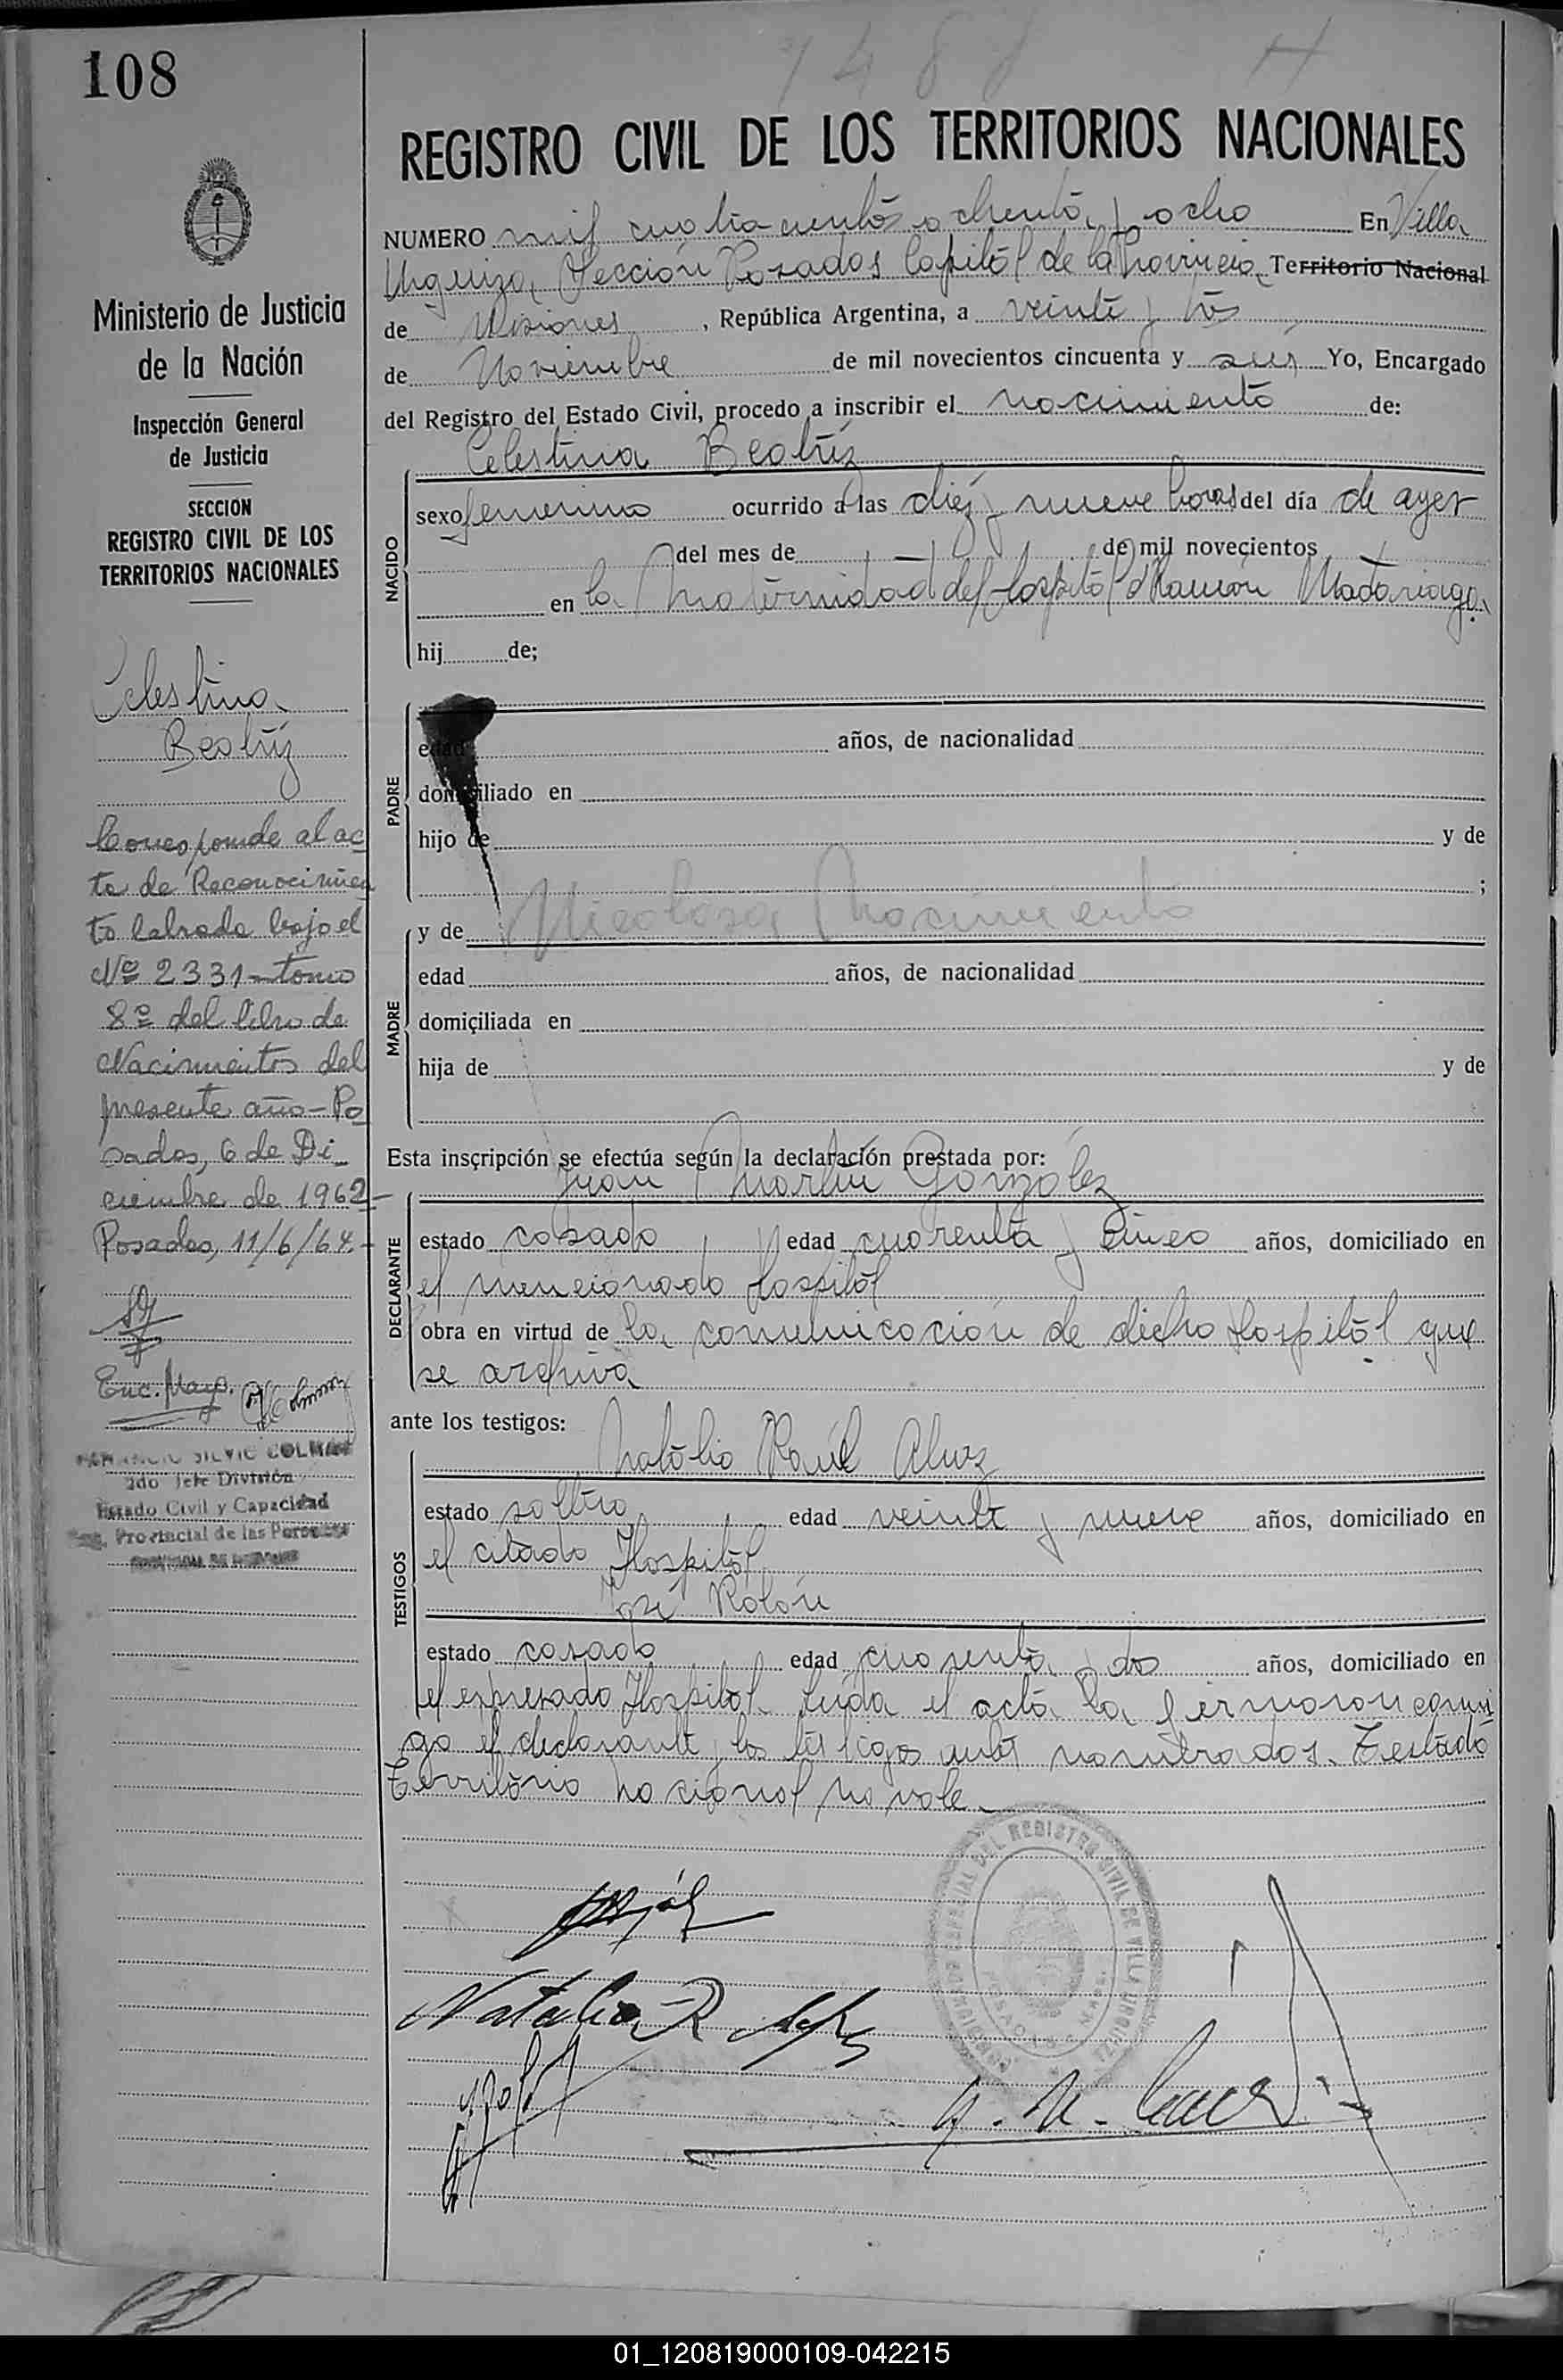 108
1488 H
REGISTRO CIVIL DE LOS TERRITORIOS NACIONALES
NUMERO mil cuatrocientos ochenta y ocho En Villa
Urquiza, Sección Posadas Capital de la Provincia, Territorio Nacional
de Misiones, República Argentina, a veinte y tres
de Noviembre de mil novecientos cincuenta y seis Yo, Encargado
del Registro del Estado Civil, procedo a inscribir el nacimiento de:
Celestina Beatriz
NACIDO
sexo femenino ocurrido a las diez y nueve horas del día de ayer
del mes de — de mil novecientos
en la Maternidad del Hospital Dr Ramón Madariaga,
hij de;
PADRE
edad años, de nacionalidad
domiciliado en
hijo de y de
;
y de Nicolasa Nacimiento
MADRE
edad años, de nacionalidad
domiciliada en
hija de y de
Esta inscripción se efectúa según la declaración prestada por:
Juan Martin González
DECLARANTE
estado casado, edad cuarenta y cinco años, domiciliado en
el mencionado Hospital
obra en virtud de la comunicación de dicho Hospital que
se archiva
ante los testigos:
Natalio Raúl
TESTIGOS
estado soltero edad veinte y nueve años, domiciliado en
el citado Hospital
José Rolón
estado casado edad cuarenta y dos años, domiciliado en
el expresado Hospital. Leida el acta la firmaron conmi
go el declarante y los testigos antes nombrados. Testado
Territorio nacional no vale.
Ministerio de Justicia
de la Nación
Inspección General
de Justicia
SECCION
REGISTRO CIVIL DE LOS
TERRITORIOS NACIONALES
Celestina
Beatriz
Corresponde al ac
ta de Reconocimien
to labrada bajo el
Nº 2331 - tomo
8º del libro de
Nacimientos del
presente año - Po
sadas, 6 de Di
ciembre de 1962 -
Posadas, 11/6/64 -
Enc. Mayo.
SILVIO COLMAN
2do Jefe División
Estado Civil y Capacidad
Provincial de las Personas
REGISTRO CIVIL DE VILLA URQUIZA
POSADAS
Natalio R
01_120819000109-042215